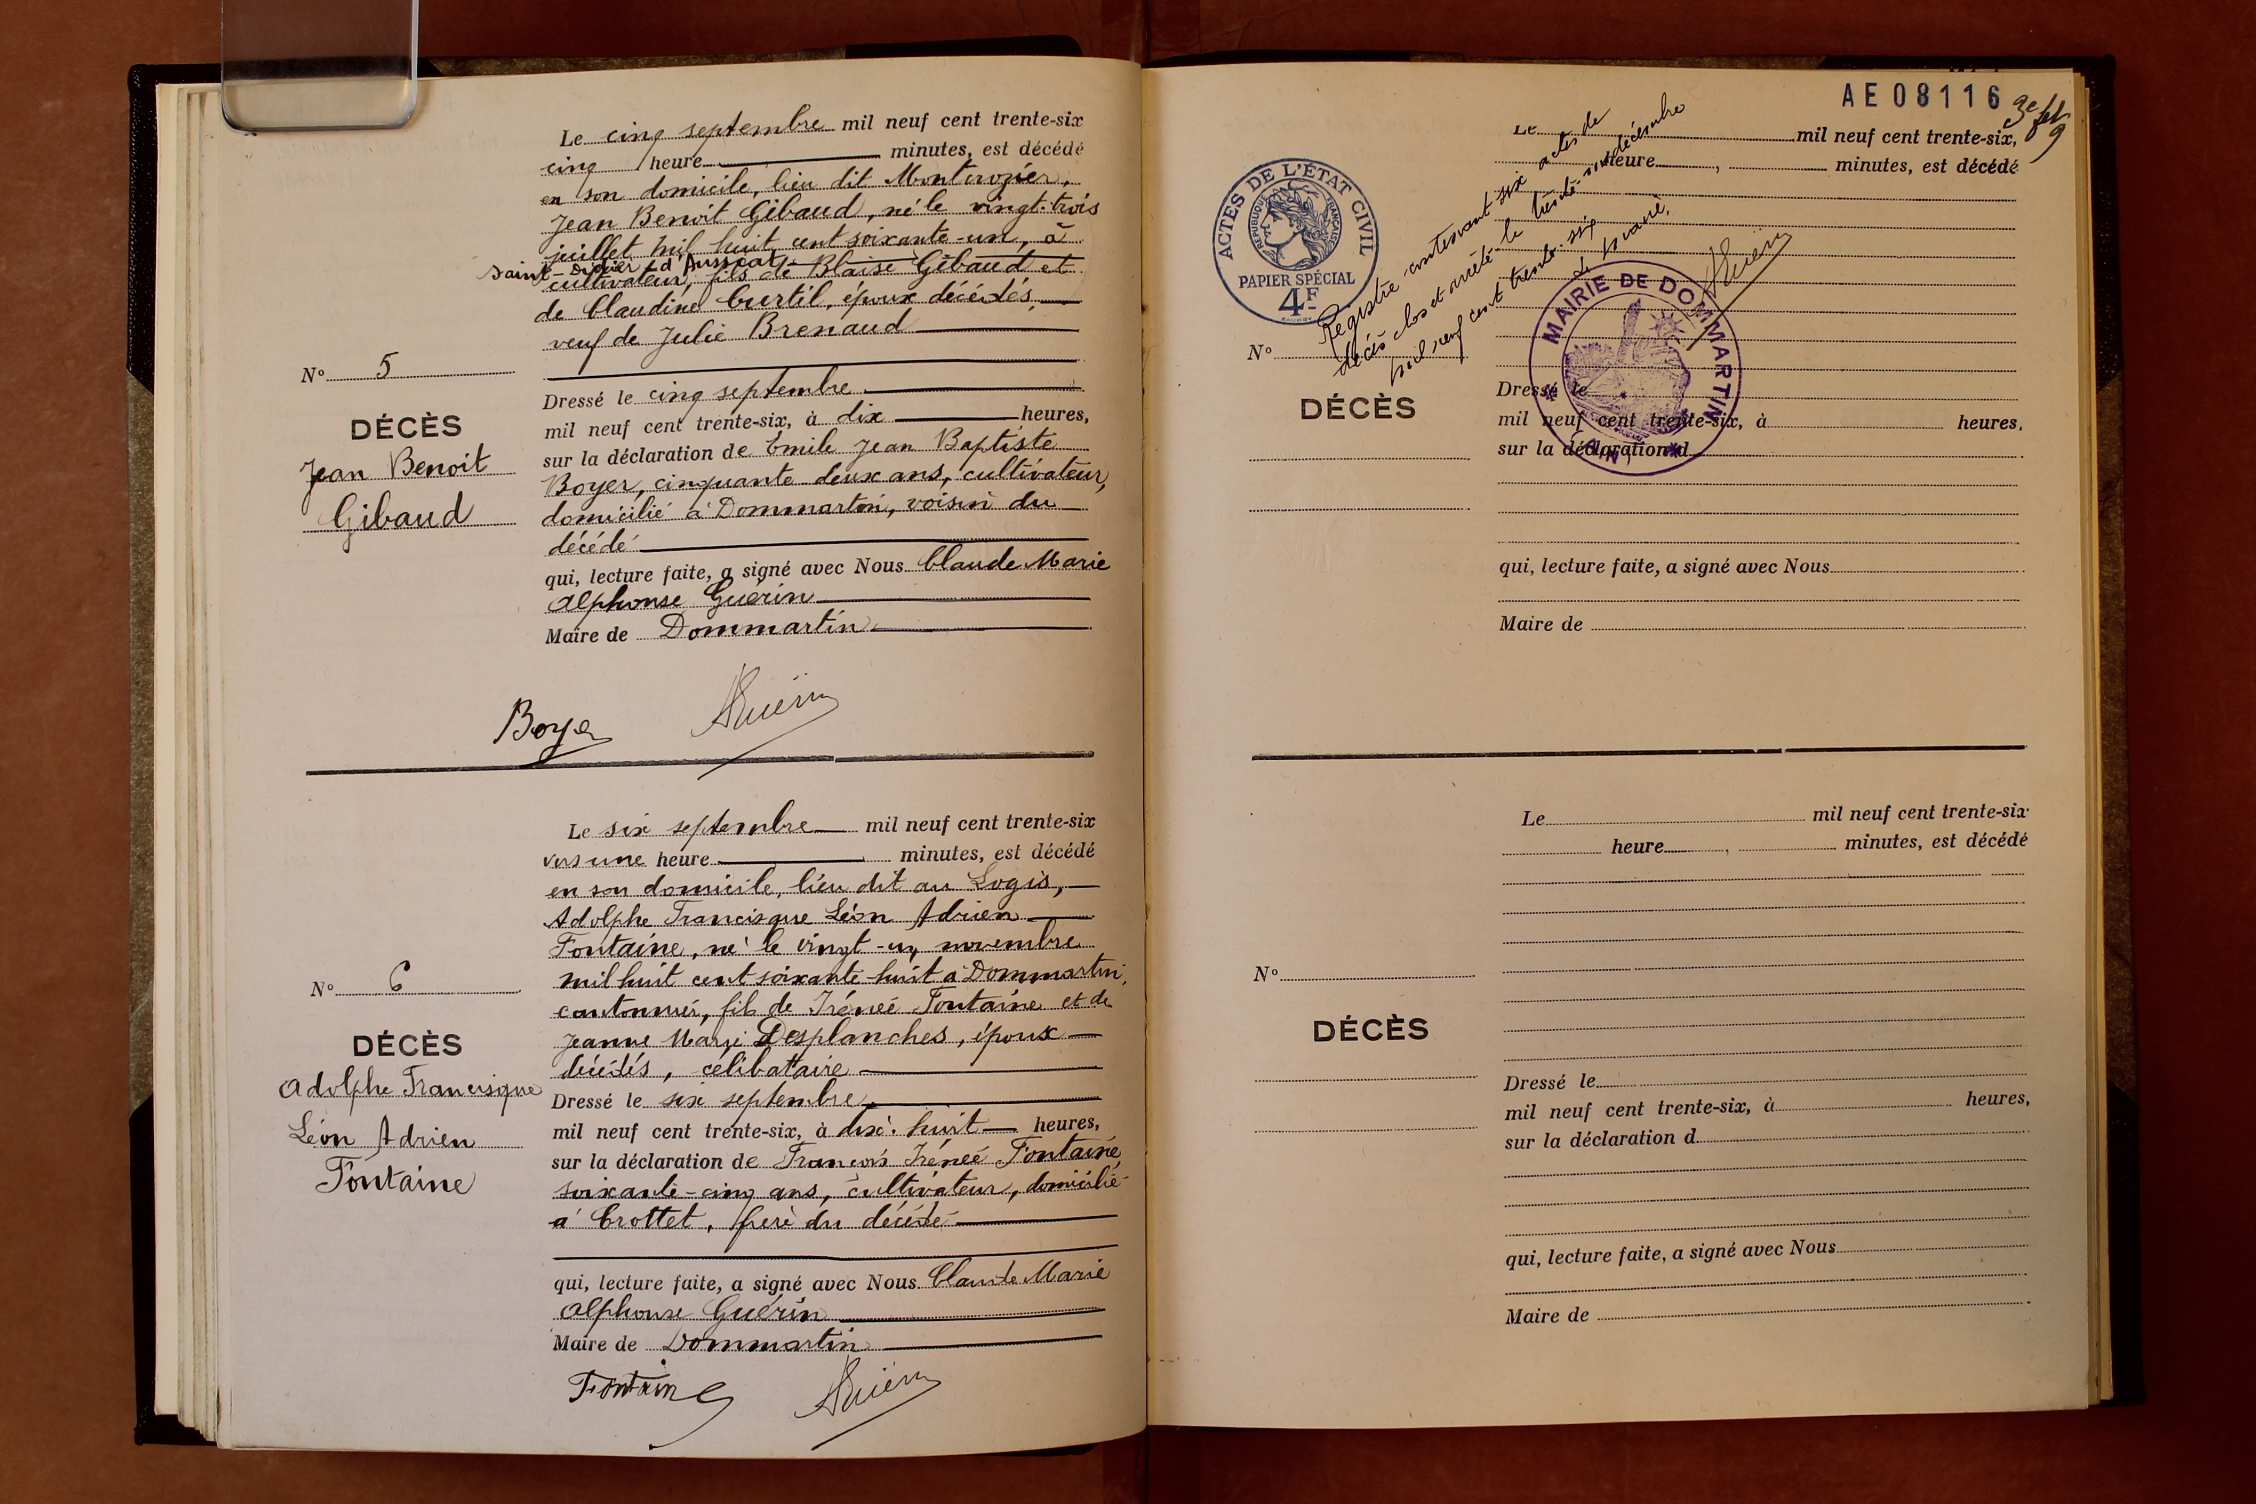 Le cinq septembre mil neuf cent trente-six
cinq heure minutes, est décédé
en son domicile, lieu dit Montcrozier,
Jean Benoit Gibaud, né le vingt-trois
juillet mil huit cent soixante-un, à
Saint-Didier-d'Aussiat,
cultivateur, fils de Blaise Gibaud et
de Claudine Curtil, époux décédés,
veuf de Julie Brenaud
N° 5
DÉCÈS
Jean Benoit
Gibaud
Dressé le cinq septembre
mil neuf cent trente-six, à dix heures,
sur la déclaration de Emile Jean Baptiste
Boyer, cinquante deux ans, cultivateur,
domicilié à Dommartin, voisin du
décédé
qui, lecture faite, a signé avec Nous Claude Marie
Alphonse Guérin
Maire de Dommartin
Boyer AGuérin
Le six septembre mil neuf cent trente-six
vers une heure minutes, est décédé
en son domicile, lieu dit au Logis,
Adolphe Francisque Léon Adrien
Fontaine, né le vingt-un novembre
mil huit cent soixante-huit à Dommartin,
cantonnier, fils de Irénée Fontaine et de
Jeanne Marie Desplanches, époux
décédés, célibataire
N° 6
DÉCÈS
Adolphe Francisque
Léon Adrien
Fontaine
Dressé le six septembre
mil neuf cent trente-six, à dix-huit heures,
sur la déclaration de François Irénée Fontaine
soixante-cinq ans, cultivateur, domicilié
à Crottet, frère du décédé
qui, lecture faite, a signé avec Nous Claude Marie
Alphonse Guérin
Maire de Dommartin
Fontaine AGuérin
AE08116
ACTES DE L'ÉTAT CIVIL
RÉPUBLIQUE FRANÇAISE
PAPIER SPÉCIAL
4F
Registre contenant six actes de
décès clos et arrêté le trente-un décembre
mil neuf cent trente-six
AGuérin
MAIRIE DE DOMMARTIN
(AIN)
Le mil neuf cent trente-six,
heure , minutes, est décédé
N°
DÉCÈS
Dressé le
mil neuf cent trente-six, à heures,
sur la déclaration d
qui, lecture faite, a signé avec Nous
Maire de
Le mil neuf cent trente-six
heure , minutes, est décédé
N°
DÉCÈS
Dressé le
mil neuf cent trente-six, à heures,
sur la déclaration d
qui, lecture faite, a signé avec Nous
Maire de